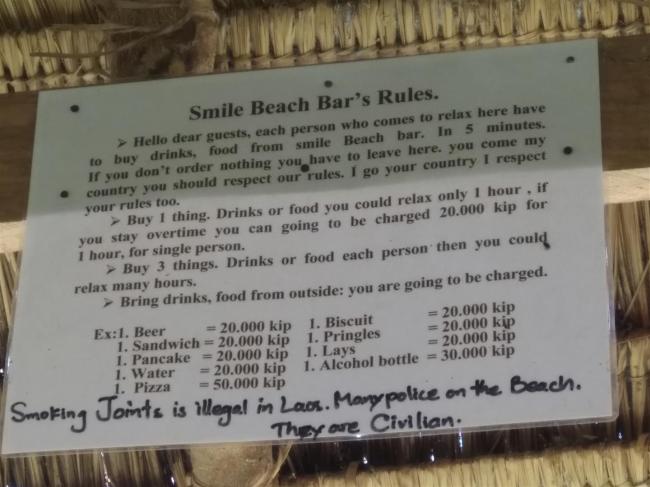 Smile Beach Bar's Rules.
➢ Hello dear guests, each person who comes to relax here have
to buy drinks, food from smile Beach bar. In 5 minutes.
If you don't order nothing you have to leave here. you come my
country you should respect our rules. I go your country I respect
your rules too.
➢ Buy 1 thing. Drinks or food you could relax only 1 hour , if
you stay overtime you can going to be charged 20.000 kip for
1 hour, for single person.
➢ Buy 3 things. Drinks or food each person then you could
relax many hours.
➢ Bring drinks, food from outside: you are going to be charged.
Ex:1. Beer = 20.000 kip 1. Biscuit = 20.000 kip
1. Sandwich = 20.000 kip 1. Pringles = 20.000 kip
1. Pancake = 20.000 kip 1. Lays = 20.000 kip
1. Water = 20.000 kip 1. Alcohol bottle = 30.000 kip
1. Pizza = 50.000 kip
Smoking Joints is illegal in Laos. Many police on the Beach.
They are Civilian.